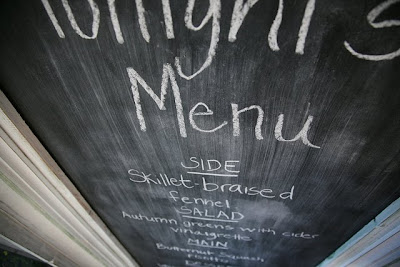 Tonight's
Menu
SIDE
Skillet-braised
fennel
SALAD
Autumn greens with sider
vinaigrette
MAIN
Butternut Squash
risotto